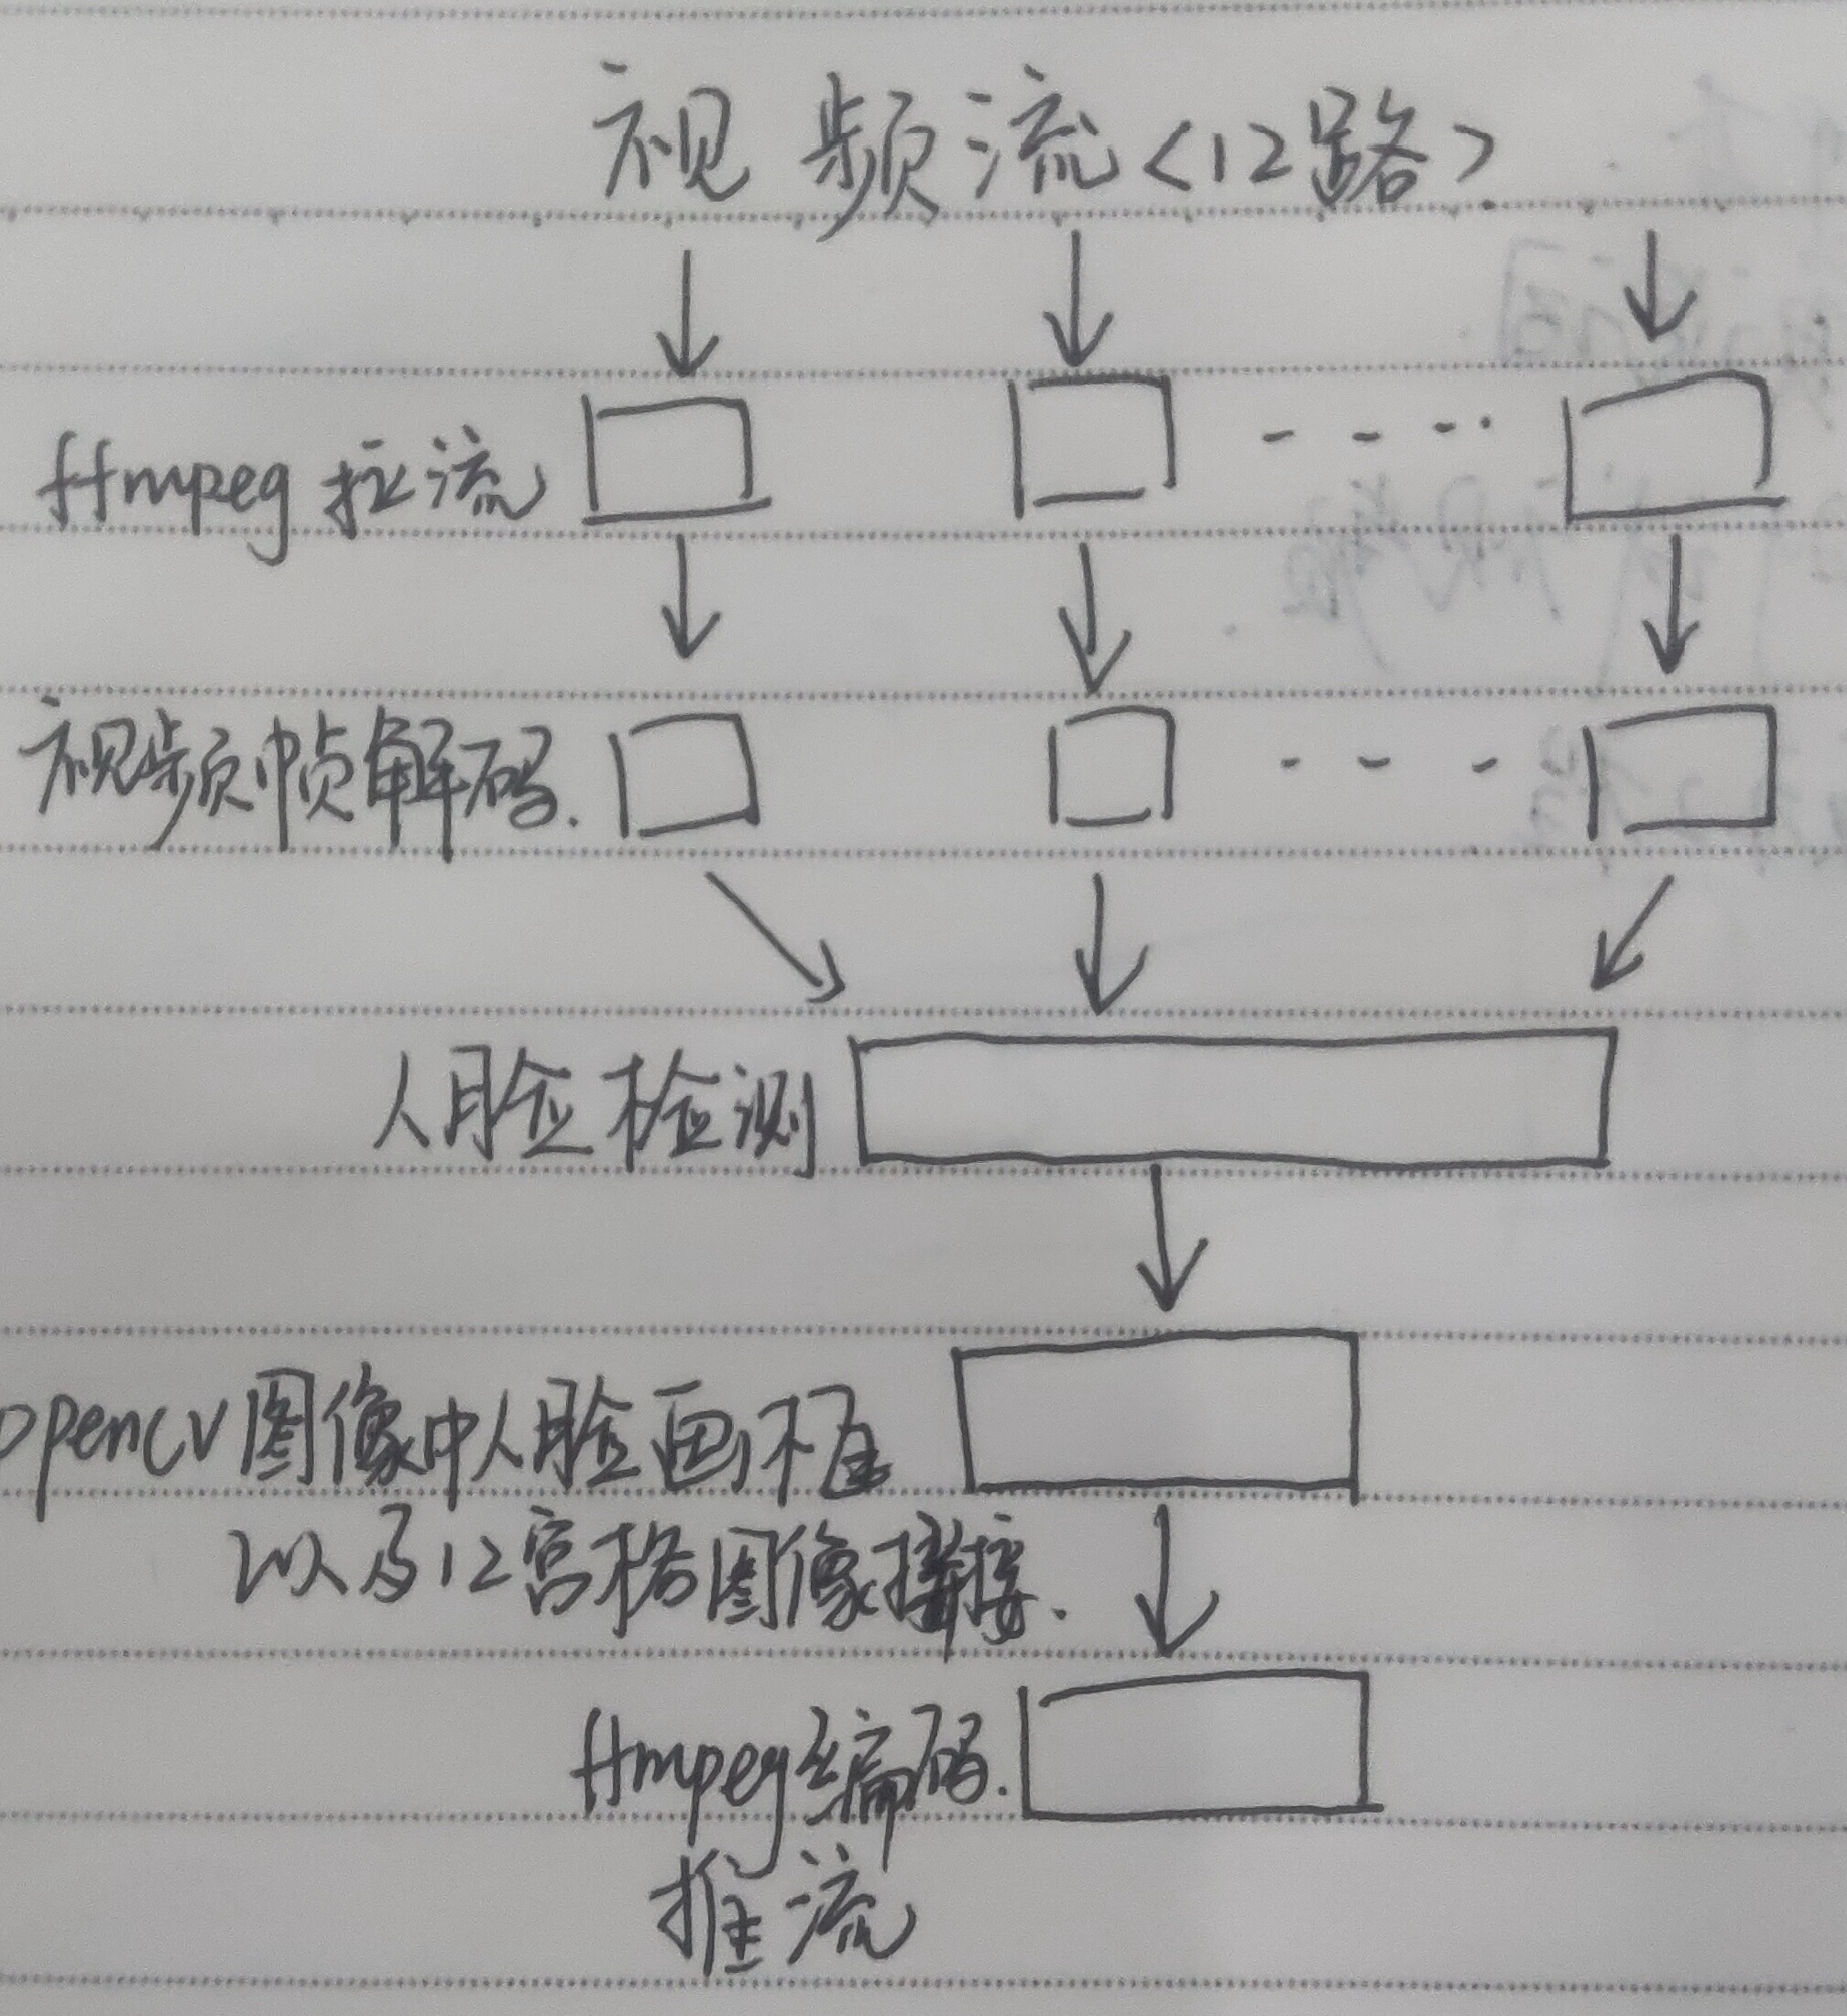 视频流<12路>
ffmpeg 拉流
视频帧解码.
人脸检测
opencv图像中人脸画框
以及12宫格图像拼接.
ffmpeg编码.
推流